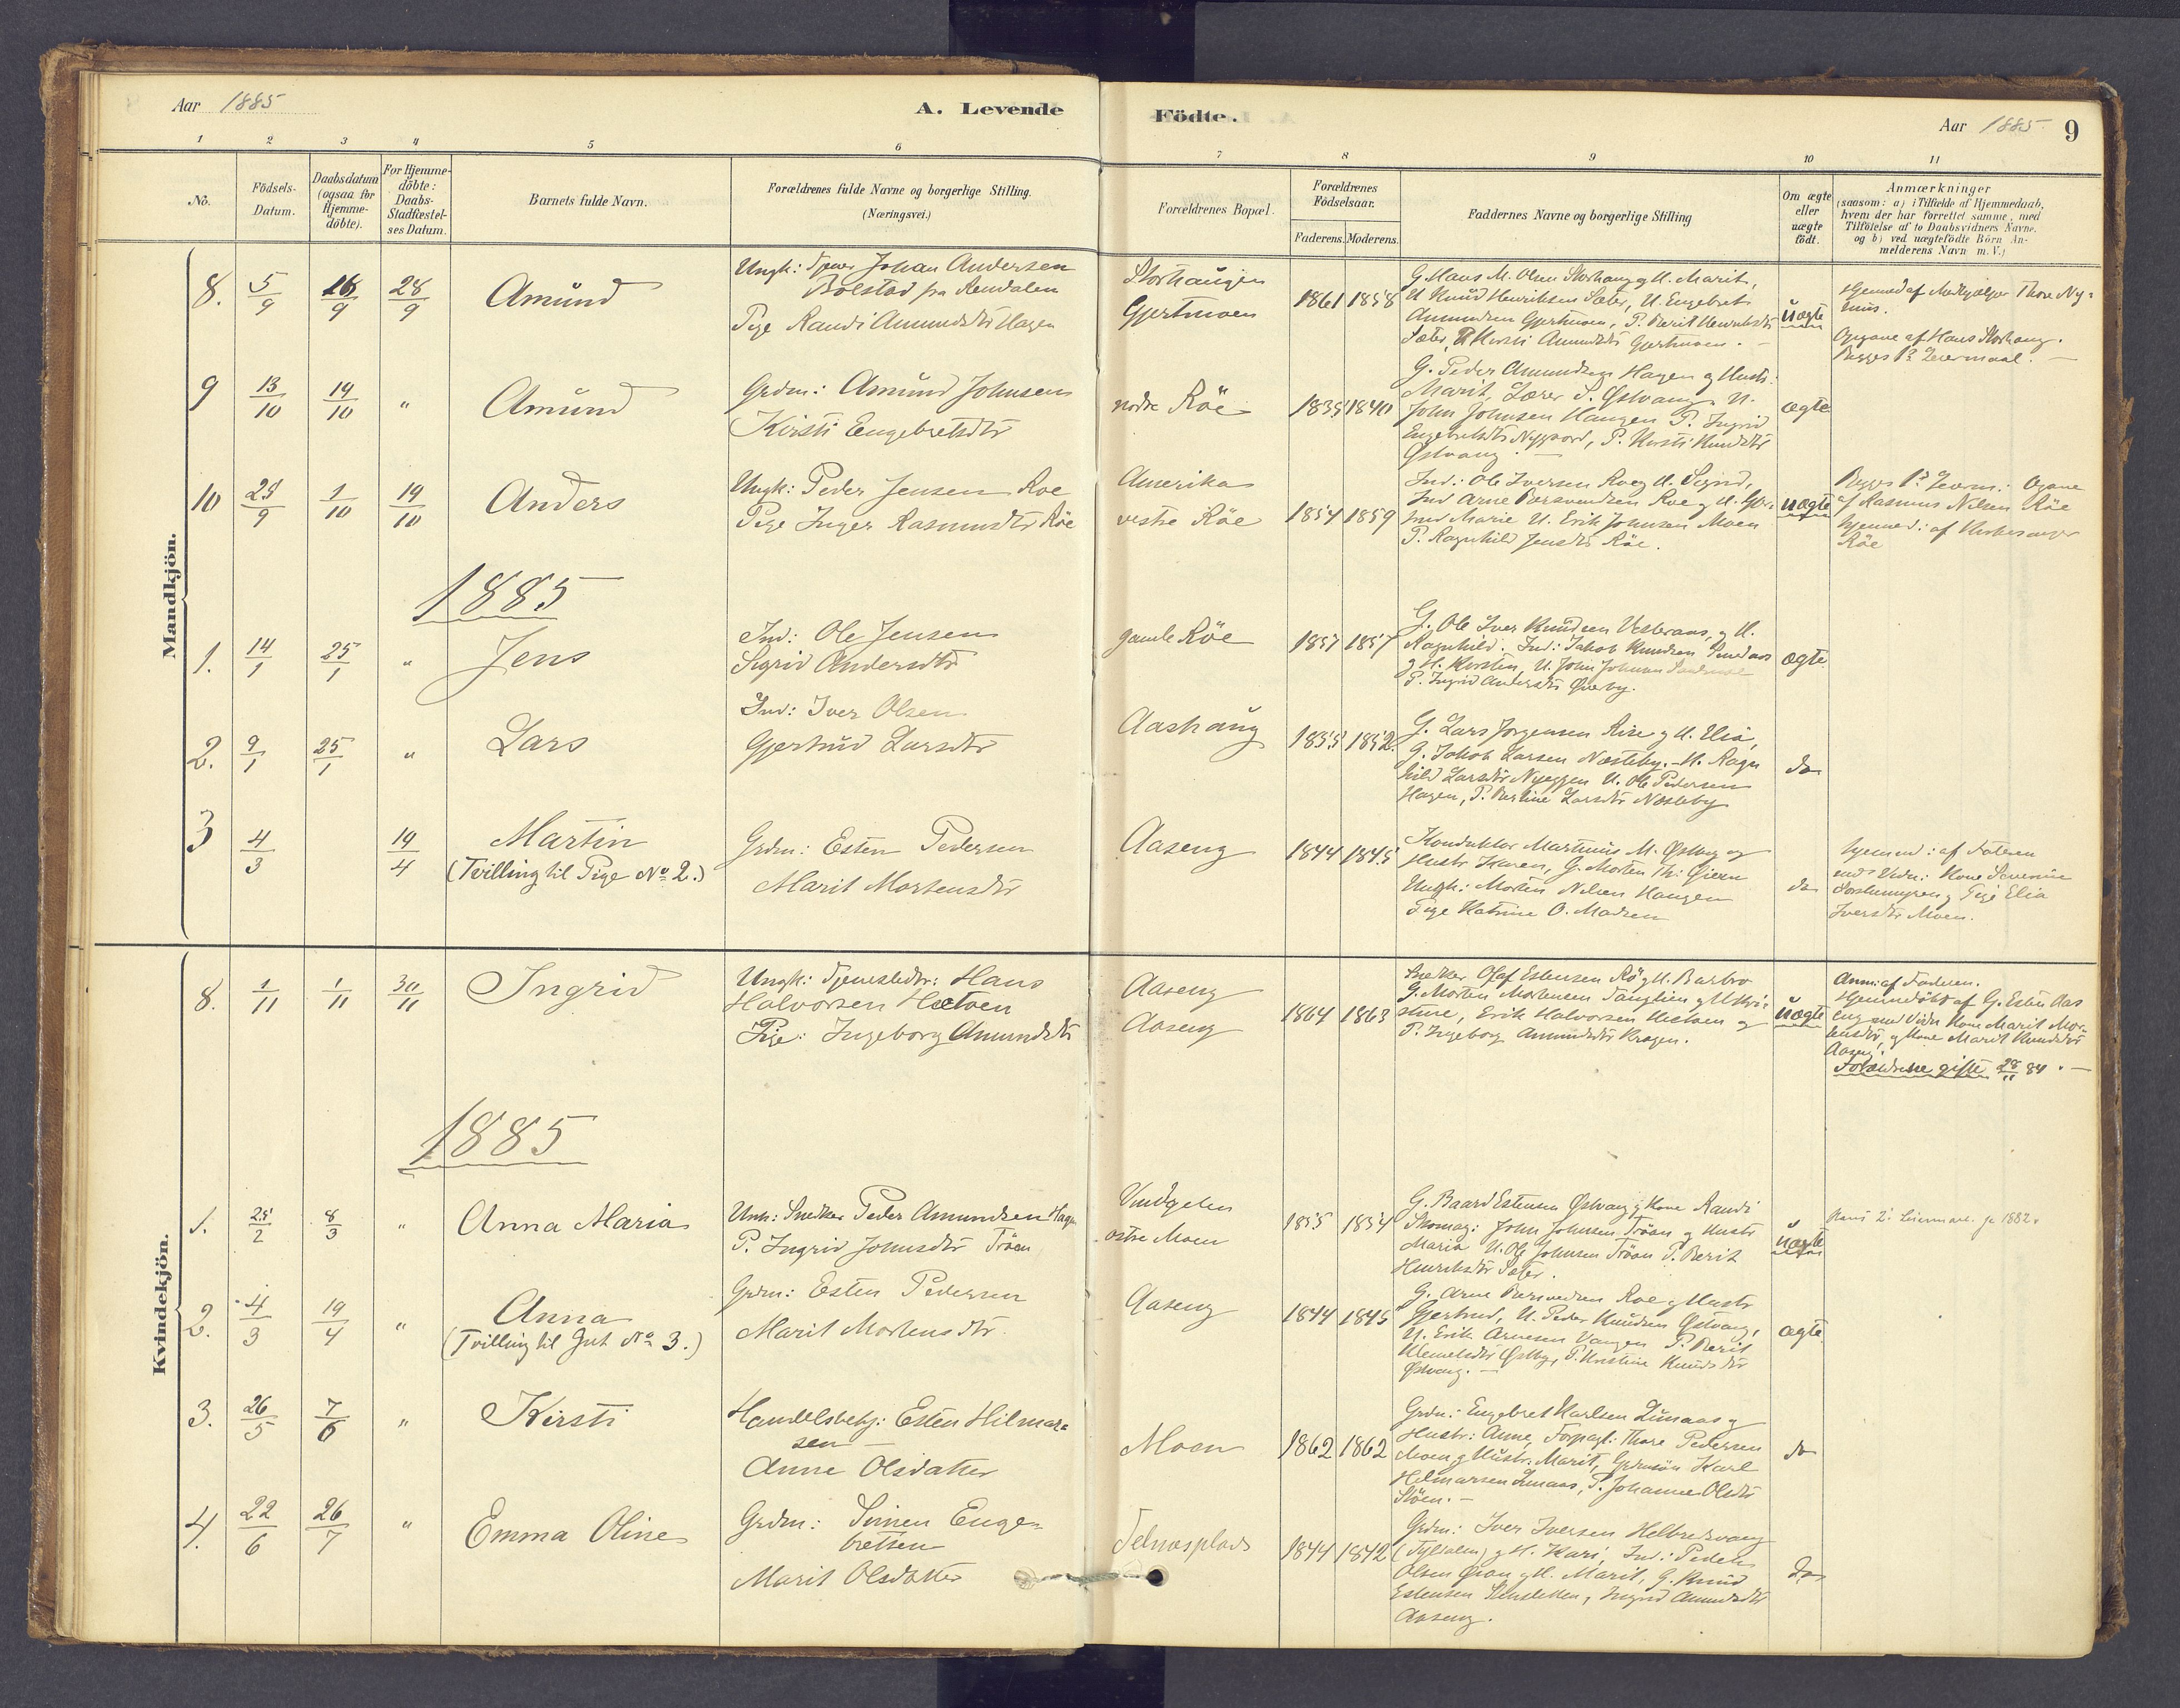 Aar 1885
A. Levende
Födte.
Aar 1885
9
1 2 3 4 5 6
7 8 9 10 11
No.
Födsels-Datum.
Daabsdatum (ogsaa for Hjemme-döbte).
For Hjemme-döbte: Daabs-Stadfæstel-ses Datum.
Barnets fulde Navn.
Forældrenes fulde Navne og borgerlige Stilling.
(Næringsvei.)
Forældrenes Bopæl.
Forældrenes Födselsaar.
Faderens. Moderens.
Faddernes Navne og borgerlige Stilling
Om ægte eller uægte födt.
Anmærkninger
(saasom: a) i Tilfælde af Hjemmedaab,
hvem der har forrettet samme, med
Tilföielse af to Daabsvidners Navne.
og b) ved uægtefödte Börn An-
melderens Navn m. V.)
Mandkjön.
8. 5/9 16/9 28/9 Amund
Ungk: Johan Andersen
Bolstad fra Rendalen
Pige Randi Amundsdtr Hagen
Storhaugen
Gjertmoen
1861 1858
G. Hans M. Olsen Storhaug og H. Marit,
U Knud Henriksen Sæter, U. Engebret
Amundsen Gjertmoen, P. Berit Henriksdtr
Sæter, P. Kirsti Amundsdtr Gjertmoen. -
uægte
Hjemmed af Thore Ny-
Opgave af Hans Storhaug.
Begges 1ste Leiermaal. -
9 13/10 19/10 " Amund
Grdm: Amund Johnsen
Kirsti Engebretsdtr
nordre Röe
1835 1840
G. Peder Amundsen Hagen og Hustr:
Marit, Lærer S. Östvang, U.
John Johnsen Haugen P. Ingrid
Engebretsdtr, P. Kirsti Knudsdtr
Östvang. -
ægte
10 29/9 1/10 19/10 Anders
Ungk: Peder Jensen Roe
Pige Inger Rasmusdtr Röe
Amerika
vestre Röe
1854 1859
Ind.: Ole Iversen Roe og H. Sigrid,
Ind Arne Roe og H.
Marie U. Erik Johnsen Moen
P. Ragnhild Jensdtr Röe.
uægte
Begges 1ste Leierm.: Opgave
af Rasmus Nilsen Röe
hjemmed: af Kirkesanger
Röe
1885
1. 14/1 25/1 " Jens
Ind: Ole Jensen
Sigrid Andersdtr
gamle Röe
1857 1857
G. Ole Iver Knudsen Vesteraas, og H.
Ragnhild. Ind: Jakob Knudsen
og H. Kirsten, U. John Johnsen
P. Ingrid Andersdtr
ægte
2. 9/1 25/1 " Lars
Ind: Iver Olsen
Gjertrud Larsdtr
Aashaug
1855 1852.
G. Lars Jörgensen Rise og H. Elia,
G. Jakob Larsen Næsteby. - H. Ragn
hild Larsdtr U. Ole Pedersen
Hagen, P. Larsdtr Næsteby
do
3 4/3 19/4 Martin
(Tvilling til Pige No 2.)
Grdm: Esten Pedersen
Marit Mortensdtr
Aaseng
1844 1845
Konduktör Martinus M. Östby og
Hustr Karen, G. Morten Th: Öiern
Ungk: Morten Nilsen Haugen
Pige Katrine O. Madsen
do
hjemmed: af Faderen
med Vidn: Kone Severine
og Pige Elia
Iversdtr Moen.
Kvindekjön.
8. 1/11 1/11 30/11 Ingrid
Ungk: Hans
Halvorsen
Pige: Ingeborg Amundsdtr
Aaseng
Aaseng
1864 1863
Snedker Olaf Estensen Rö og H. Barbro
G. Morten Mortensen og H Kri-
stine, Erik Halvorsen og
P. Ingeborg Amundsdtr Krogen.
uægte
Anm: af Faderen.
Hjemmedöbt af G. Esten Aas
eng med Vidn Kone Marit Mor-
tensdtr, og Kone Marit Knudsdtr
Aaseng.
Forældrene gifte 28/11 84. -
1885
1. 25/2 8/3 " Anna Maria
Unk: Snedker Peder Amundsen Hagen
P. Ingrid Johnsdtr Tröen
Vindgelen
östre Moen
1855 1854
G. Baard Estensen Östvang og Kone Randi
Skomag: John Johnsen Tröen og Hustr
Maria U. Ole Johnsen Tröen P. Berit
Henriksdtr Sæter.
uægte
Hans 2. Leiermaal. 1882.
2. 4/3 19/4 " Anna
(Tvilling til Gut No 3.)
Grdm: Esten Pedersen
Marit Mortensdtr.
Aaseng
1844 1845
G. Arne Roe og Hustr
Gjertrud, U. Peder Knudsen Östvang,
U. Erik Arnesen Vangen P. Berit
Klemetsdtr Östby, P. Kristine Knudsdtr
Östvang. -
ægte
3. 26/5 7/6 " Kirsti
Handelsbetj: Esten Hilmar-
sen -
Anne Olsdatter
Moen
1862 1862
Grdm: Engebret Karlsen Lunaas og
Hustr: Anne, Forpagt: Thore Pedersen
Moen og Hustr. Marit, Karl
Hilmarsen Lunaas, P. Johanne Olsdtr
Stöen. -
do
4. 22/6 26/7 " Emma Oline
Grdm: Simen Enge-
bretsen
Marit Olsdatter
Telnæsplads
1844 1842
Grdm: Iver Iversen
(Tyldalen) og H. Kari, Ind.: Peder
Olsen og H. Marit, G. Knud
Estensen, Ingrid Amundsdtr
Aaseng.
do